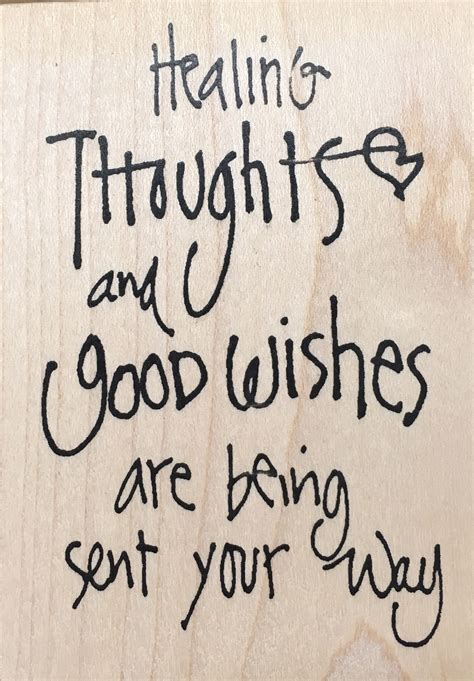 Healing
Thoughts
and
good wishes
are being
sent your way